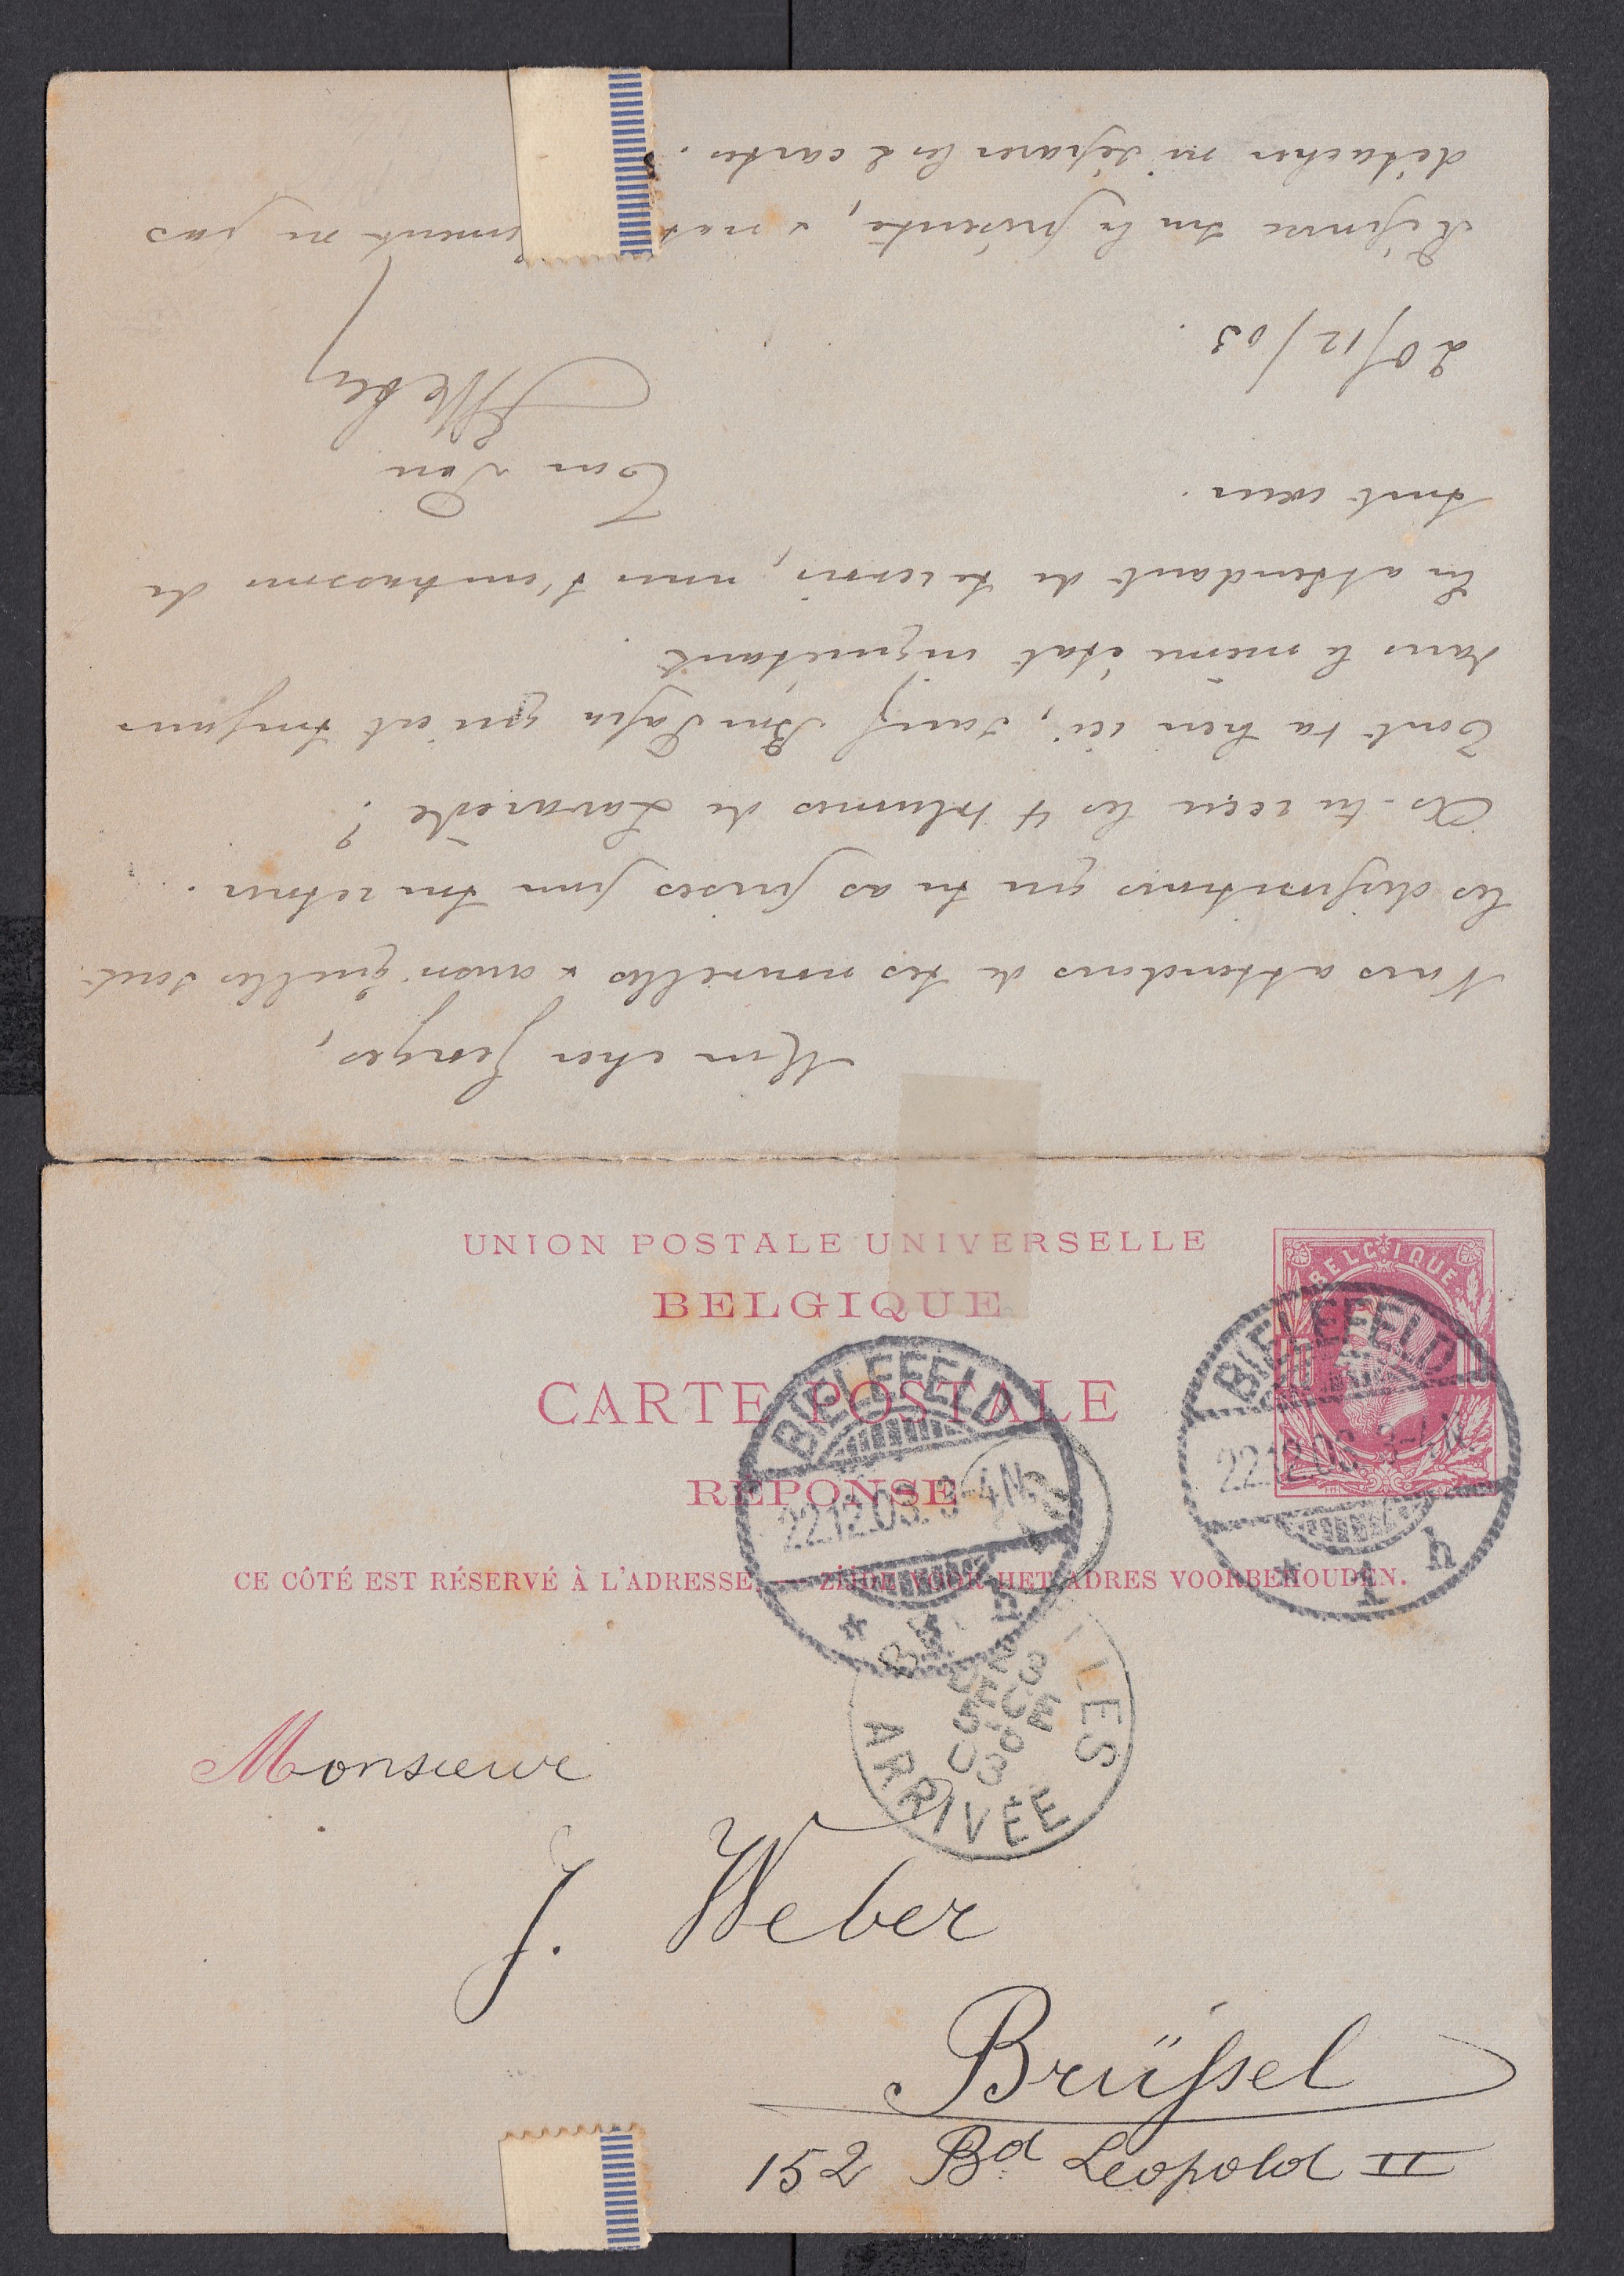 Mon cher Georges,
Nous attendons de tes nouvelles & aussi quelles sont
les dispositions que tu as prises pour ton retour.
As-tu reçu les 4 volumes de Lavarède ?
Tout va bien ici, sauf Bon Papa qui est toujours
dans le même état inquiétant.
En attendant de te revoir, nous t'embrassons de
tout cœur.
Ton
JWeber
20/12/03.
Réponse sur la présente, & ne pas
détacher ni séparer les 2 cartes.
UNION POSTALE UNIVERSELLE
BELGIQUE
CARTE POSTALE
RÉPONSE
CE CÔTÉ EST RÉSERVÉ À L'ADRESSE. — ZIJDE VOOR HET ADRES VOORBEHOUDEN.
BELGIQUE
BIELEFELD
22.12.03. 3-4N.
* 1 h
BIELEFELD
22.12.03. 3-4N.
* 1 h
23
DECE
5-6
03
ARRIVÉE
Monsieur
J. Weber
Brüssel
152 Bd Leopold II